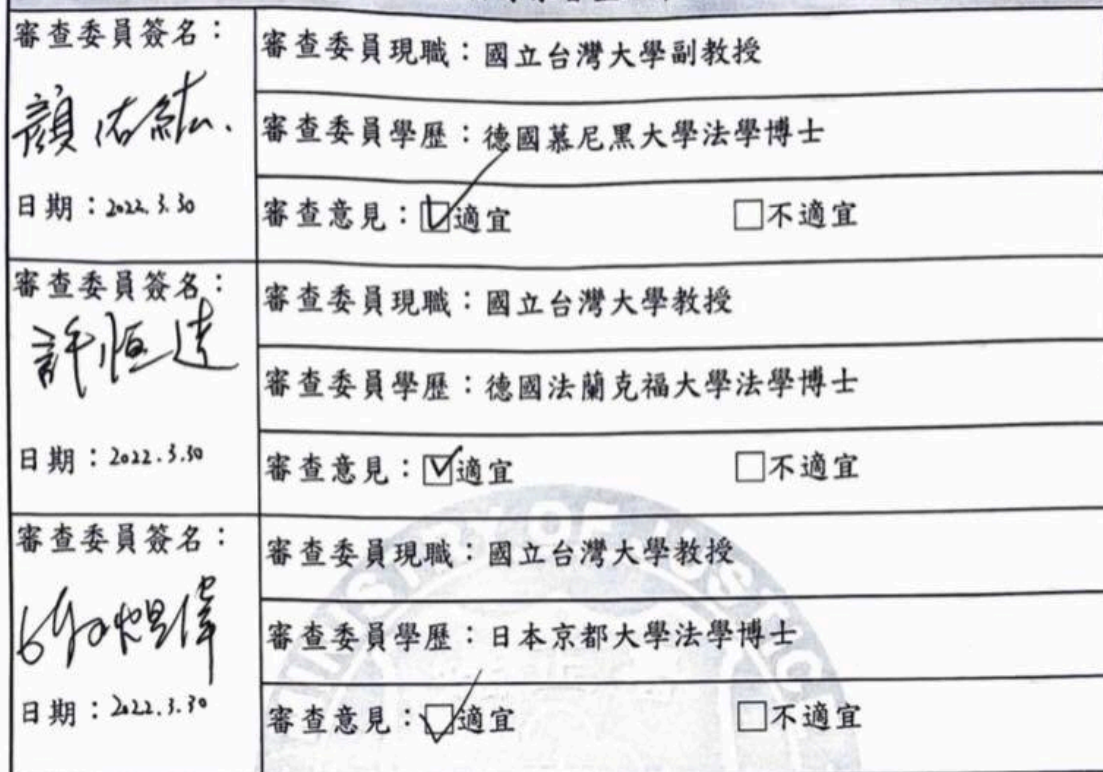 審查委員簽名：
顏佑紘.
日期：2022.3.30
審查委員現職：國立台灣大學副教授
審查委員學歷：德國慕尼黑大學法學博士
審查意見：☑適宜 □不適宜
審查委員簽名：
許恒達
日期：2022.3.30
審查委員現職：國立台灣大學教授
審查委員學歷：德國法蘭克福大學法學博士
審查意見：☑適宜 □不適宜
審查委員簽名：
日期：2022.3.30
審查委員現職：國立台灣大學教授
審查委員學歷：日本京都大學法學博士
審查意見：☑適宜 □不適宜
MINISTRY OF JUSTIC